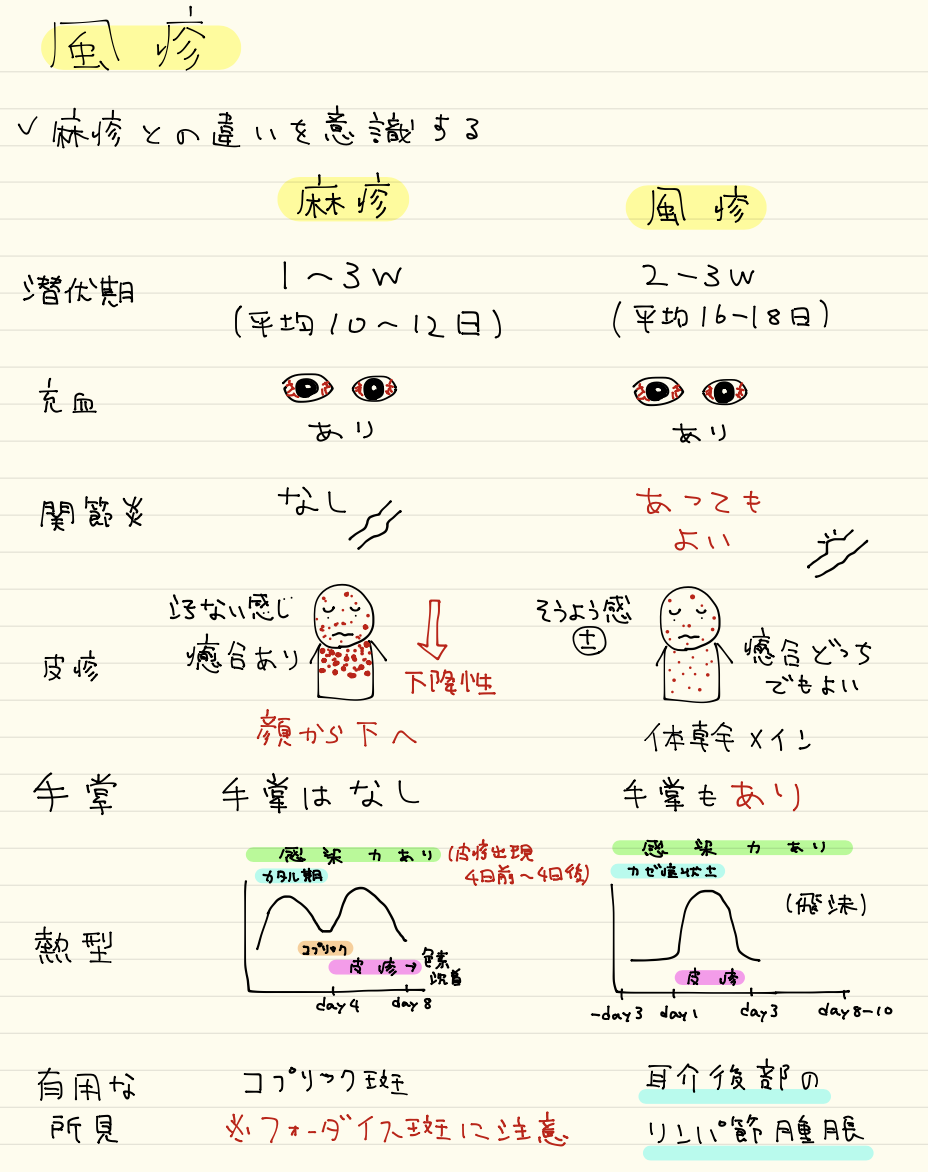 風疹
✓麻疹との違いを意識する
麻疹 風疹
潜伏期 1～3W 2-3W
(平均10～12日) (平均16-18日)
充血 あり あり
関節炎 なし あっても
よい
皮疹
浮ない感じ
癒合あり
下降性
顔から下へ
そうよう感
±
癒合どっち
でもよい
体幹メイン
手掌 手掌はなし 手掌もあり
熱型
感染力あり (皮疹出現
4日前～4日後)
カタル期
コプリック
皮疹→ 色素
沈着
day4 day8
感染力あり
カゼ症状±
(飛沫)
皮疹
-day3 day1 day3 day8-10
有用な
所見
コプリック斑
※フォーダイス斑に注意
耳介後部の
リンパ節腫脹